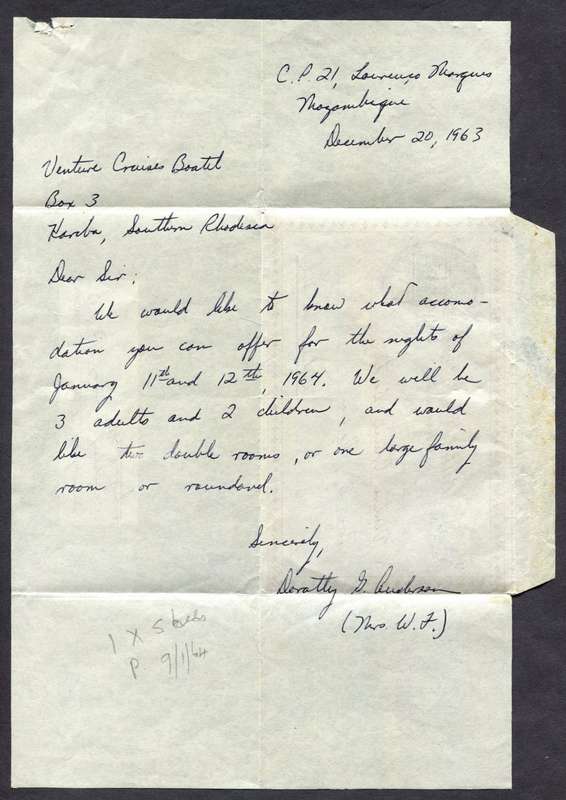 C.P. 21, Lourenço Marques
Mozambique
December 20, 1963
Venture Cruises Boatel
Box 3
Kariba, Southern Rhodesia
Dear Sir:
We would like to know what accomo-
dation you can offer for the nights of
January 11th and 12th, 1964. We will be
3 adults and 2 children, and would
like two double rooms, or one large family
room or roundavel.
Sincerely,
Dorothy G. Anderson
(Mrs W. F.)
1 X 5 beds
P 9/1/64